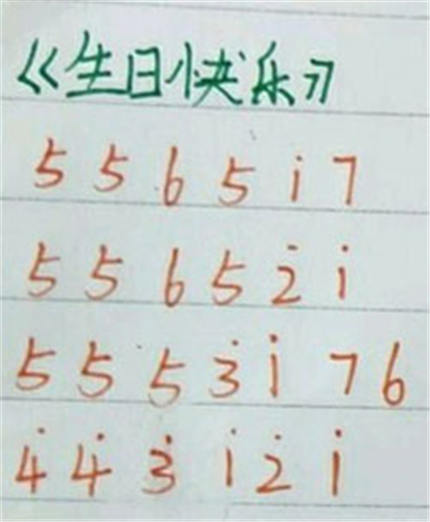 《生日快乐》
5 5 6 5 i 7
5 5 6 5 2̇ i
5 5 5 3̇ i 7 6
4̇ 4̇ 3̇ i 2̇ i